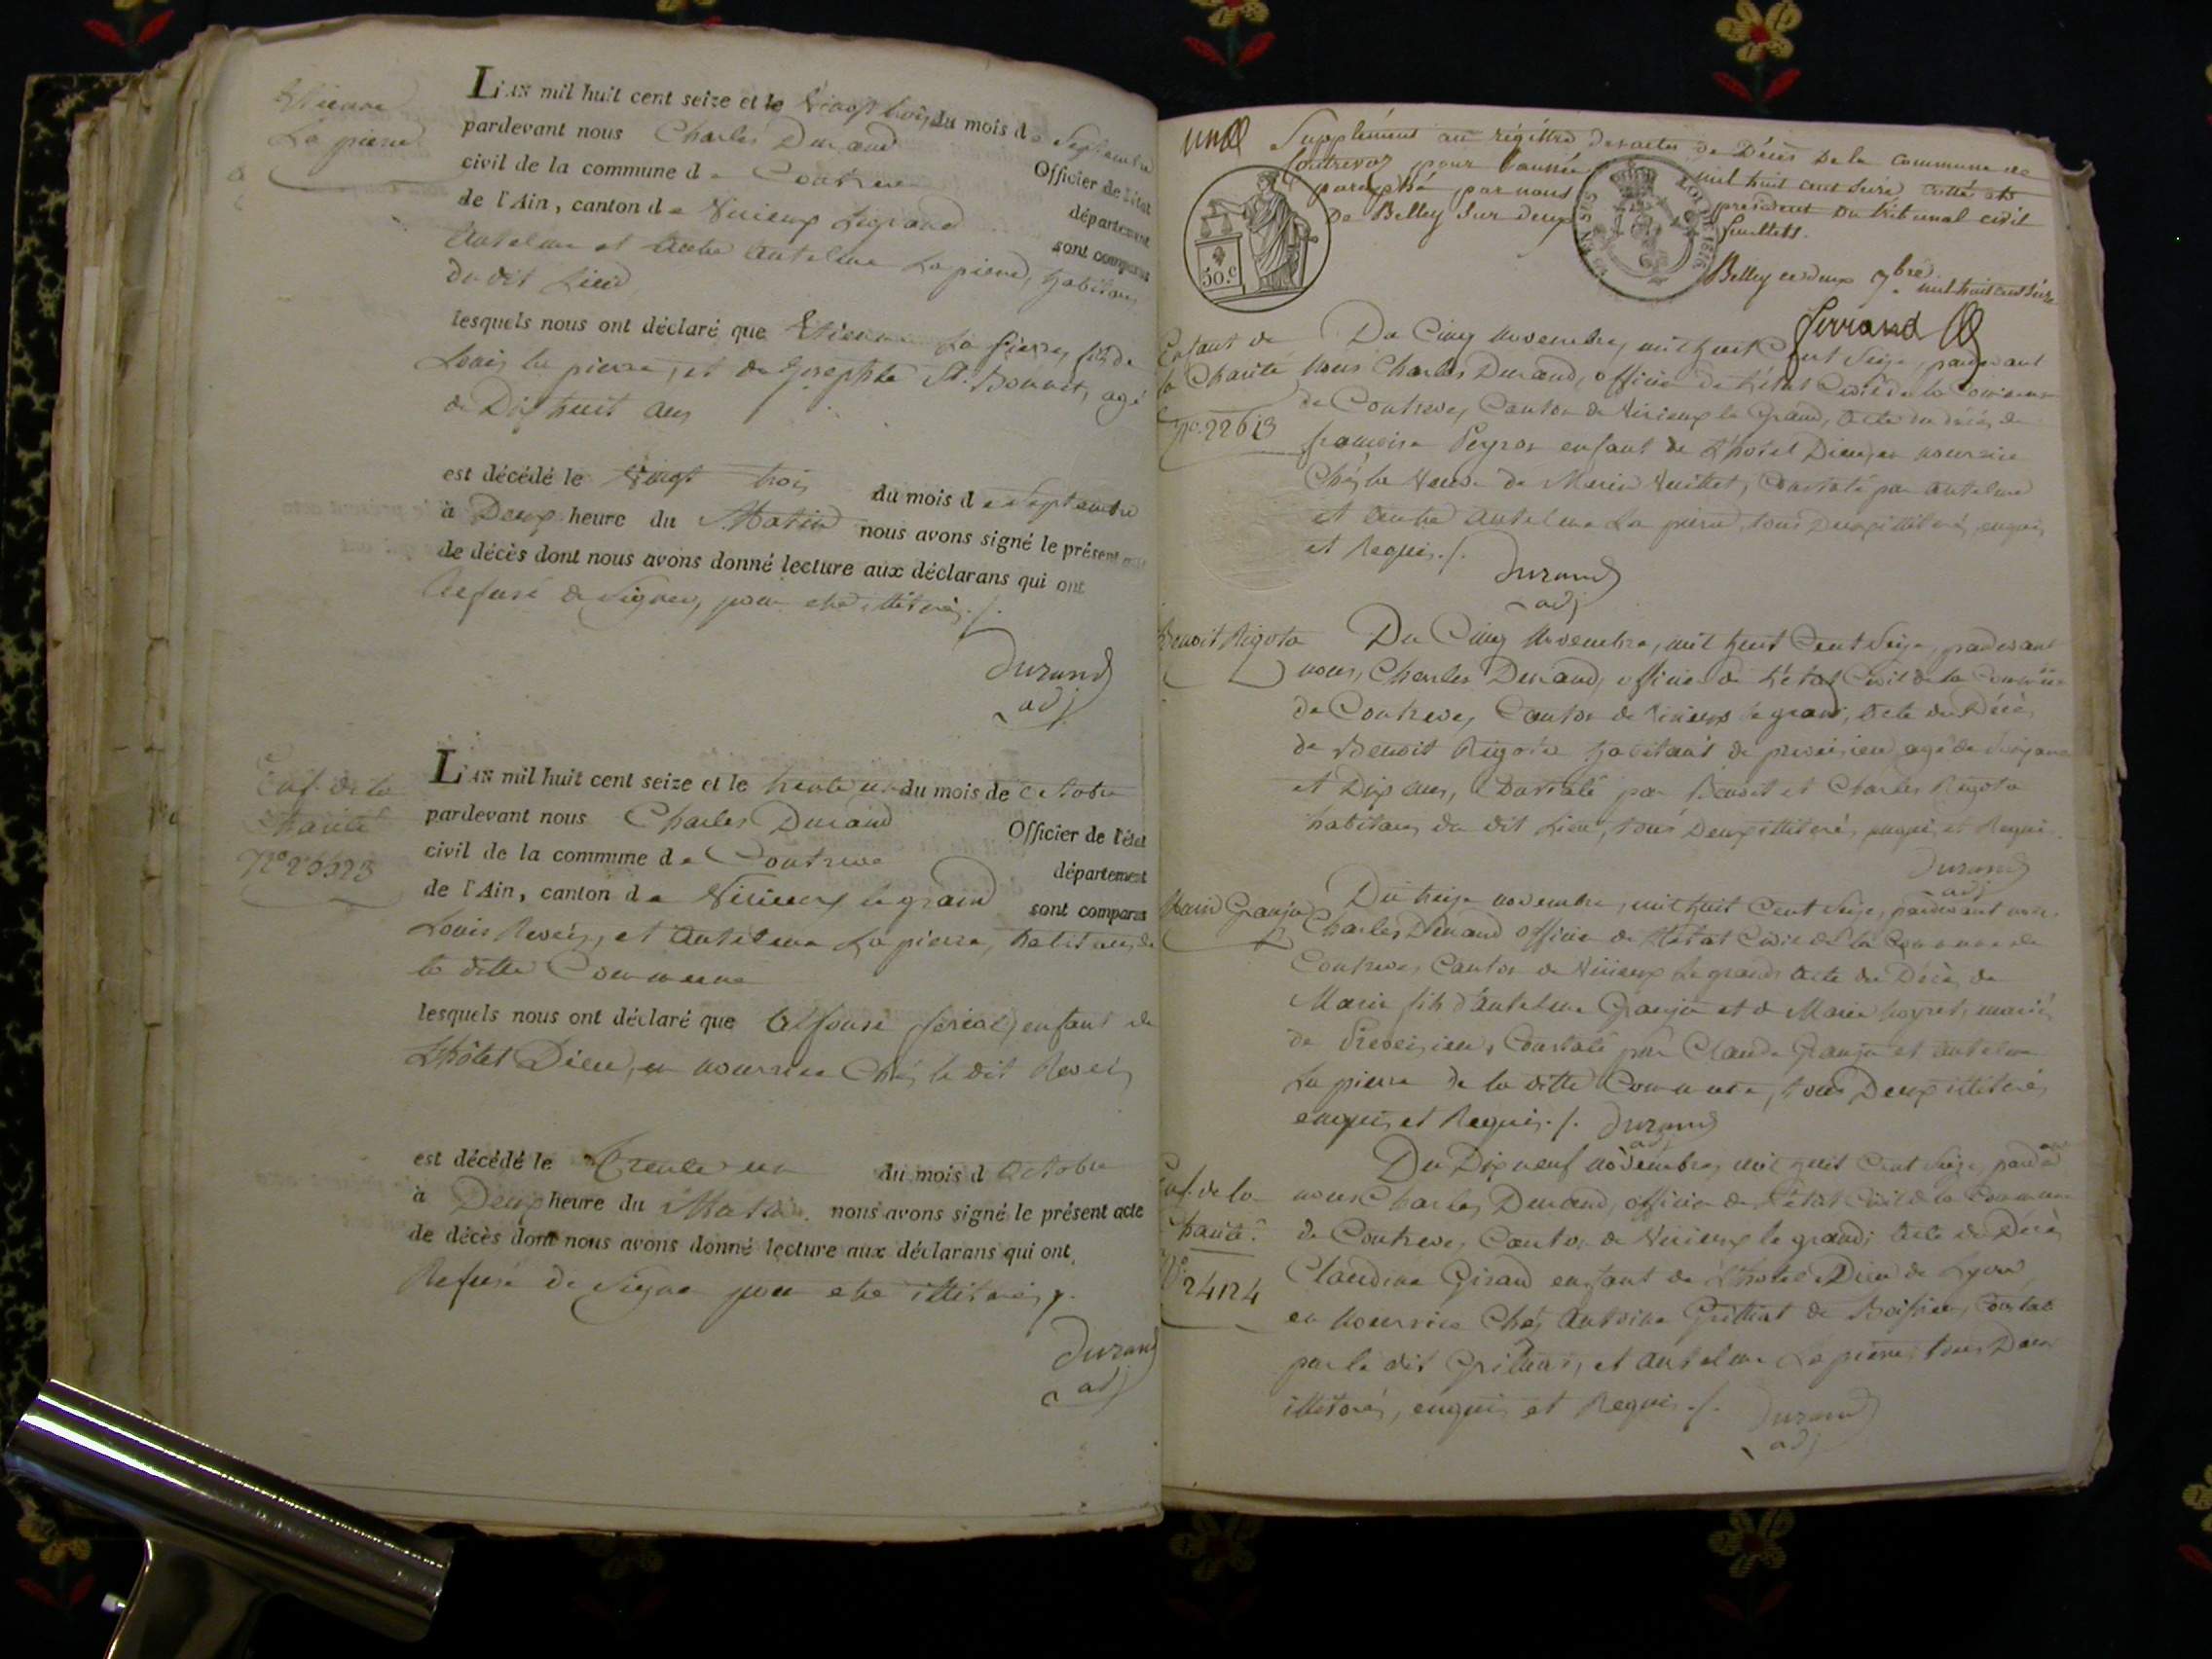 Etienne
La pierre
L'AN mil huit cent seize et le Vingt trois du mois de Septembre
pardevant nous Charles Durand Officier de l'état
civil de la commune de Contrevoz département
de l'Ain, canton de Virieux Legrand sont comparus
Antelme et autre Antelme La pierre, habitans
du dit Lieu
lesquels nous ont déclaré que Etienne La pierre, fils de
Louis la pierre, et de Josephte St. Bonnet, agé
de Dix huit ans
est décédé le Vingt trois du mois de Septembre
à Deux heure du Matin nous avons signé le présent acte
de décès dont nous avons donné lecture aux déclarans qui ont
Refusé de Signer, pour etre illiterés ./.
Durand
adj
Enf. de la
Charité
N° 23523
L'AN mil huit cent seize et le trente un du mois de Octobre
pardevant nous Charles Durand Officier de l'état
civil de la commune de Contrevoz département
de l'Ain, canton de Virieux le grand sont comparus
Louis Reveis, et Antelme La pierre, habitans de
la ditte Commune
lesquels nous ont déclaré que enfant de
L'hôtel Dieu, en nourrice Chés le dit Reveis
est décédé le Trente un du mois d Octobre
à Deux heure du Matin nous avons signé le présent acte
de décès dont nous avons donné lecture aux déclarans qui ont,
Refusé de Signer pour etre illiterés
Durand
adj
Supplément au régistre des actes de Décès de la commune de
Contrevoz pour l'année mil huit cent seize cotté et
paraphé par nous président du tribunal civil
de Belley sur deux feuillets.
50.c
Belley ce deux 9.bre mil huit cent seize
Ferrand
Enfant de
la Charité
N°. 22613
Du Cinq Novembre, mil huit Cent Seize, pardevant
Nous Charles Durand, officier de l'état Civil de la Commune
de Contrevoz, Canton de Virieux le Grand, Acte du décès de
françoise Peyron enfant de L'hotel Dieu, en nourrice
Chés la Veuve de Marin Vuillet, Constaté par Antelme
et autre Antelme La pierre, tous Deux illiterés, enquis
et Requis ./.
Durand
adj
Benoit Rigota
Du Cinq Novembre, mil huit Cent Seize, pardevant
nous, Charles Durand, officier de l'état Civil de la Commune
de Contrevoz, Canton de Virieux le grand, Acte du Décès
de Benoit Rigota habitant de agé de
et Dix ans, Constaté par Benoit et Charles Rigota
habitans du dit Lieu, tous Deux illiterés, enquis et Requis.
Durand
adj
Marie Granju
Du treize novembre, mil huit Cent Seize, pardevant nous
Charles Durand officier de l'état Civil de la Commune de
Contrevoz, Canton de Virieux Le grand, Acte du Décès de
Marie fils d'Antelme Granju et de Marie mariés
de Constaté par Claude Granju et Antelme
La pierre de la ditte Commune, tous Deux illiterés
enquis et Requis ./. Durand
adj
Enf. de la
Charité
N° 24124
Du Dix neuf novembre, mil huit Cent Seize, pardvt
nous Charles Durand, officier de l'état Civil de la Commune
de Contrevoz, Canton de Virieux le grand, Acte de Décès
Claudine Girand enfant de L'hotel Dieu de Lyon
en nourrice Chés Antoine Constaté
par le dit et Antelme La pierre, tous Deux
illiterés, enquis et Requis ./.
Durand
adj